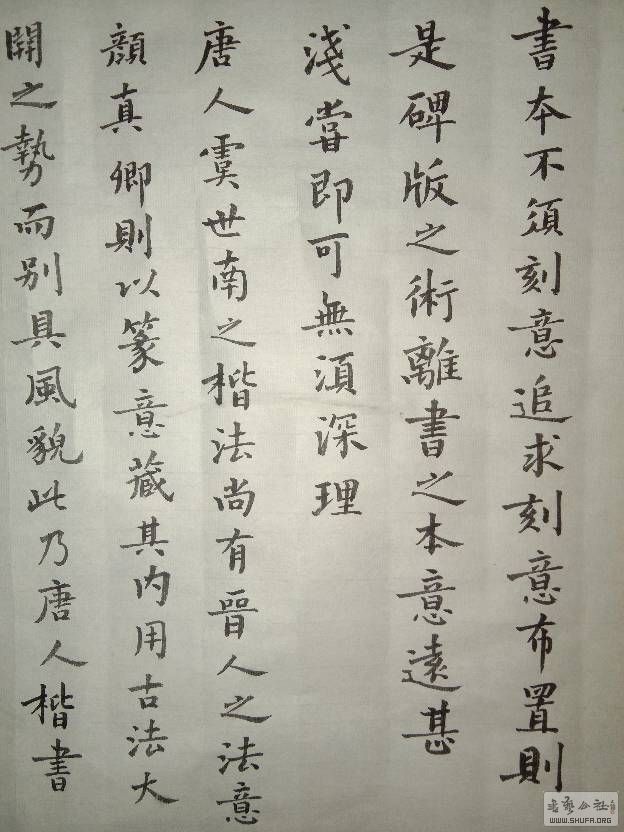 書本不須刻意追求刻意布置則
是碑版之術離書之本意遠甚
淺嘗即可無須深理
唐人虞世南之楷法尚有晉人之法意
顏真卿則以篆意藏其內用古法大
開之勢而別具風貌此乃唐人楷書
书艺公社
WWW.SHUFA.ORG